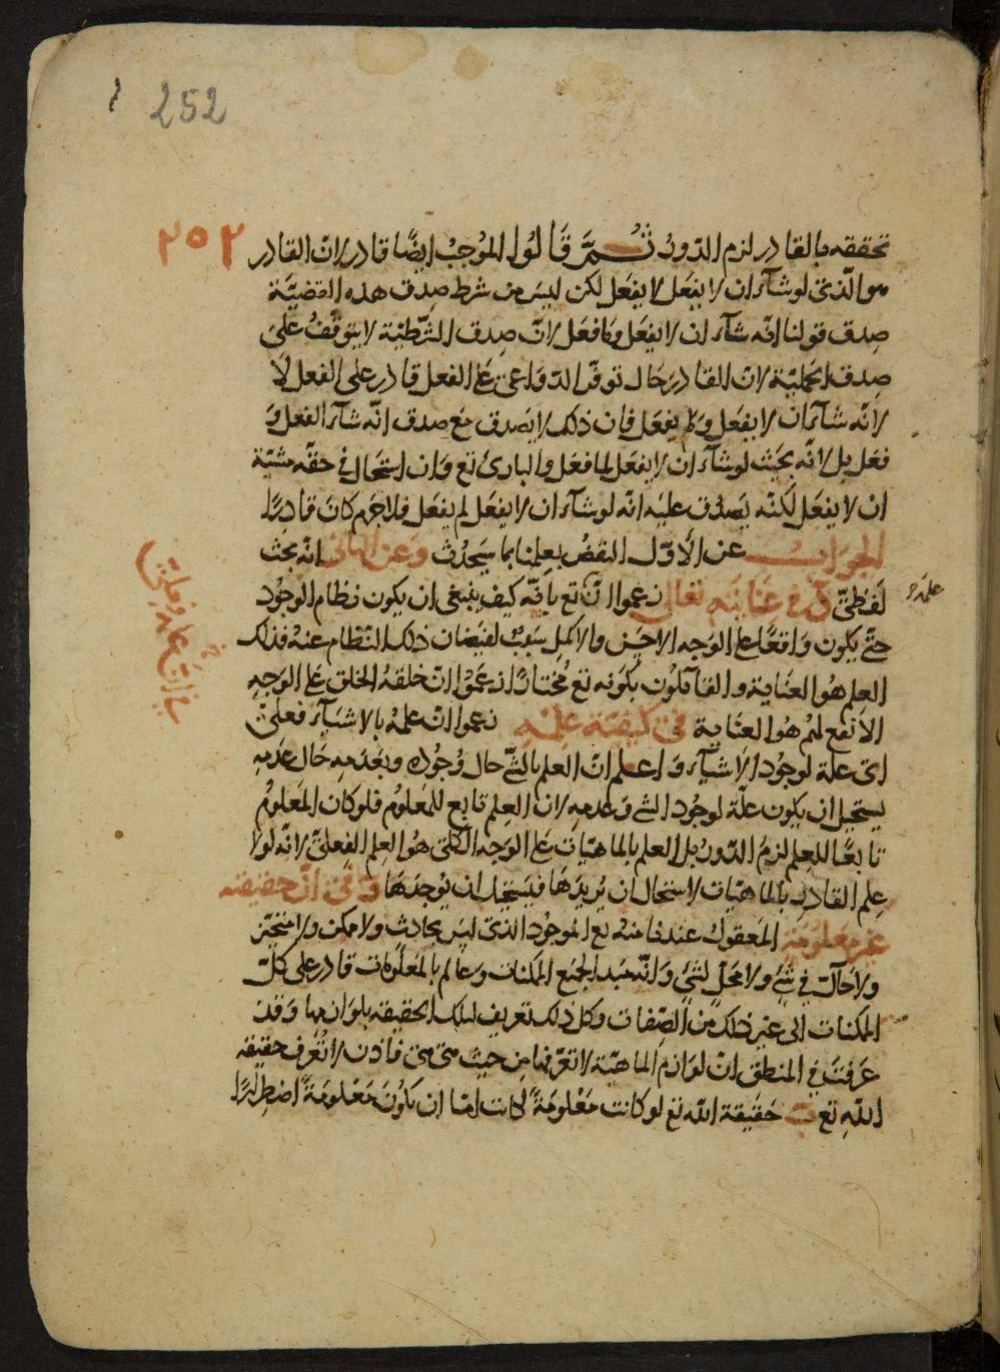 252
٢٥٢
تحققه بالقادر لزم الدّورُ ثُمَّ قَالوُا الموُجبُ ايضًا قادر لانّ القادر
هو الّذى لو شآء ان لا يفعَل لا يفعَل لكن ليسَ من شرط صدق هذه القضيّة
صِدق قولنا انّه شآء ان لا يفعَل وما فعَل لانّ صِدق الشّرطيّة لا يتوَقّفُ عَلىَ
صِدق الحمليّة لانّ القادرَ حَال توفّر الدّوَاعى عَلَى الفعل قادر على الفعل لَا
لانّه شآء ان لا يفعَل ولم يفعَل فان ذلك لا يَصدق مَع صدق انّه شآء الفعل وَ
فعَل بل لانّه بحَيث لو شآء ان لا يفعَل لما فعَل والبارئ تع وَان استحَال فى حقّه مشيّة
ان لا يفعَل لكنّه يَصدُق عليه انّه لو شآء ان لا يفعَل لم يفعَل فلا جَرم كانَ قادِرًا
الجوَاب عن الاَوّل النقضُ بعِلمنا بما سَيَحدُث وَعَن الثانى انّه بحَث
لَفظىّ فى عنايَته تعَالى زعموا انّه تع بانّه كيف ينبغى ان يكون نظام الوجُود
علمَه
حتّى يكون وَاقعًا على الوَجه الاحسَن والاكمل سَببٌ لفيَضان ذلك النّظام عنهُ فذلك
العِلم هُوَ العنَاية والقآئلوُن بكوَنه تع مُختارًا زعَمُوا انّ خلقهُ الخلق عَلى الوَجهِ
الاَنفع لهُم هُوَ العنَاية فى كيفيّة عِلمه زعموا انّ علمهُ بالاشيَآء فعلىّ
اى علّة لوجُود الاَشيآء وَاعلم انّ العلم بالشّئ حال وُجُوده وبعَدَمهِ حَال عدَمهِ
يستحيل ان يكون علّة لوجُود الشئ وَعدمه لان العِلم تابع للمَعلوُم فلو كان المعَلومُ
تابعًا للعِلم لزمَ الدّورُ بل العلم بالماهيّات عَلى الوَجه الكلّى هُوَ العِلم الفِعلىّ لانّه لولا
عِلم القادر بالماهيّات لاستحَال ان يُريدَهَا فيستحيل ان يوُجدَهَا فى انّ حقيقته
غير معَلومَةٍ المعَقولُ عندنا منه تع الموجُود الذى ليسَ بحَادث ولا ممكن ولا متحيّز
ولا حَالّ فى شئٍ ولا مَحلّ لشئٍ وَانّه مَبدأ لجميَع الممكنات وَعالم بالمعَلُومات قادر على كلّ
الممكنات الى غير ذلك من الصِّفات وكلّ ذلك تعريف لتلك الحقيقة بلوَازمها وَقدْ
عَرفتَ فى المنطق انّ لوَازم الماهيّة لا تعَرّفها من حيث هى هى فاذن لا تُعرَف حقيقة
اللّهِ تع ب حَقيقة اللّه تع لو كانت مَعْلومَةً لكانت امّا ان تكُونَ مَعْلومَةً اضطِرَارًا